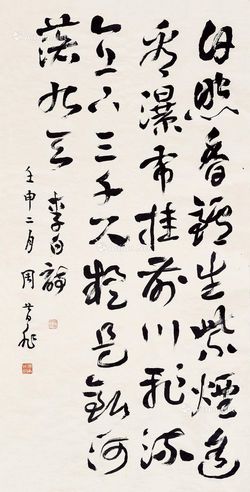 日照香爐生紫煙遙
看瀑布挂前川飛流
直下三千尺疑是銀河
落九天
李白詩
壬申二月 周昔非